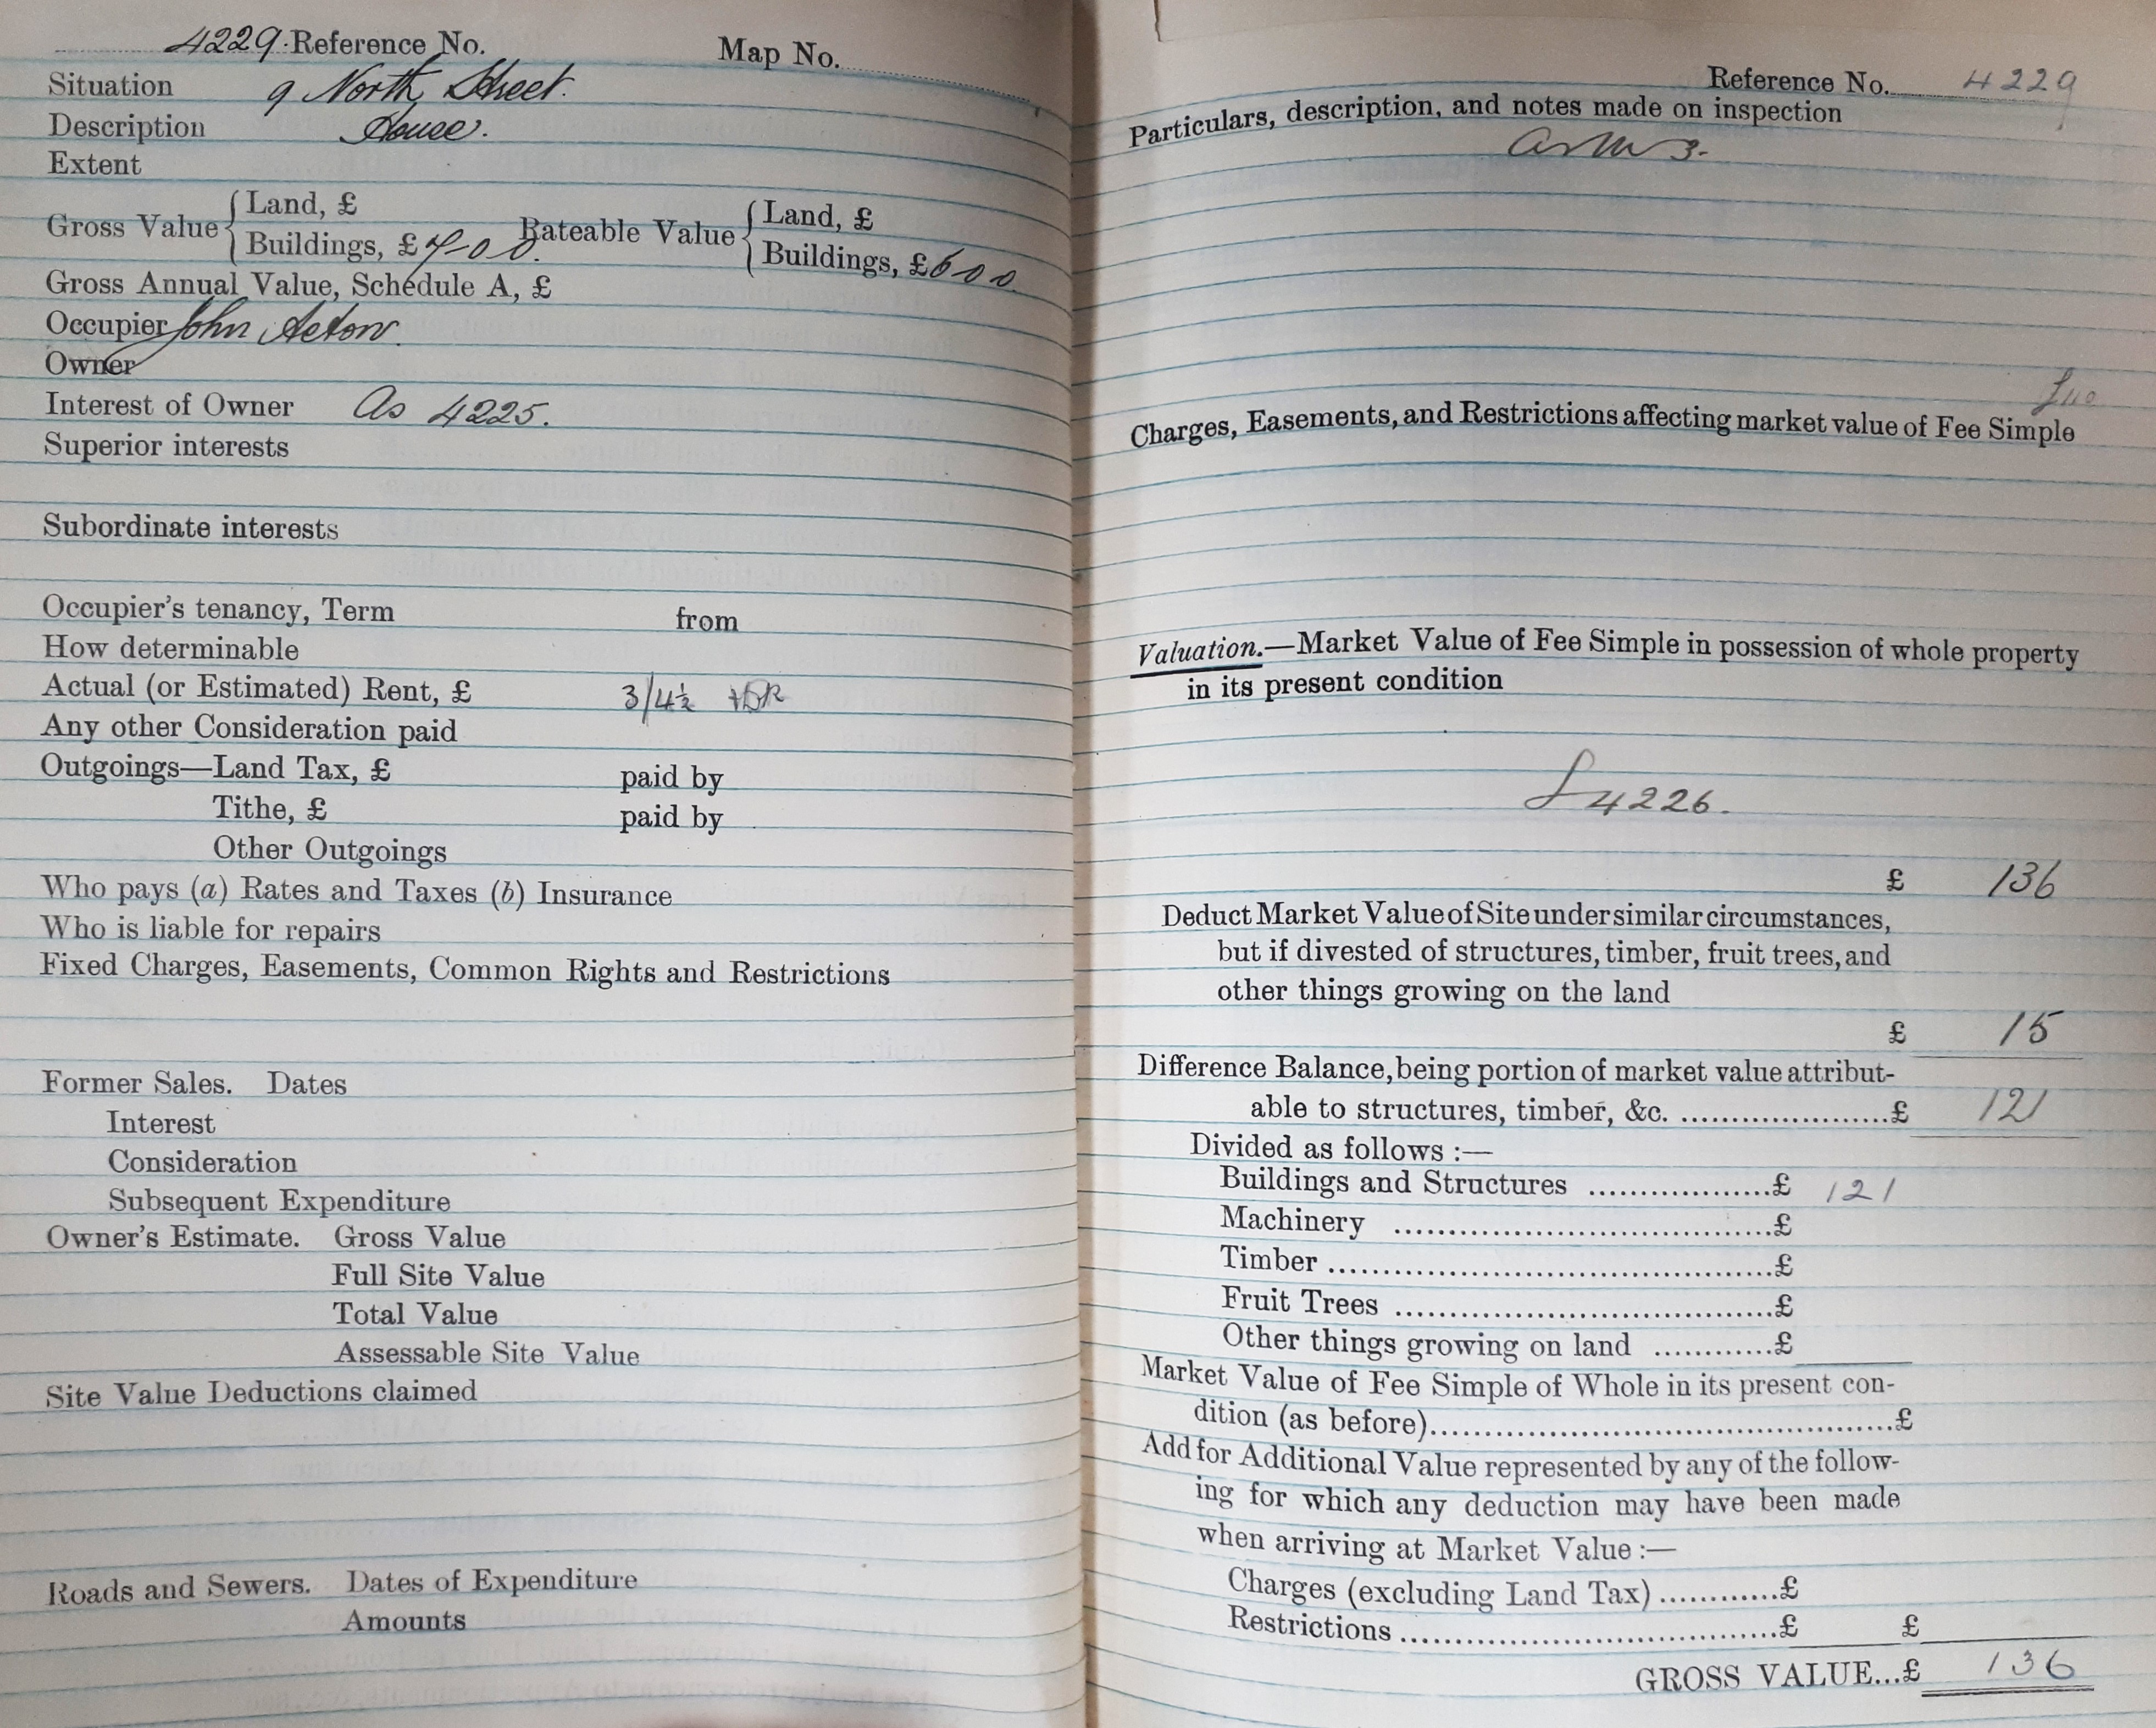 4229 Reference No. Map No.
Situation 9 North Street.
Description House.
Extent
Gross Value { Land, £ Rateable Value { Land, £
Buildings, £ 7-0-0. Buildings, £ 6-0-0
Gross Annual Value, Schedule A, £
Occupier John Acton.
Owner
Interest of Owner As 4225.
Superior interests
Subordinate interests
Occupier's tenancy, Term from
How determinable
Actual (or Estimated) Rent, £ 3/4½
Any other Consideration paid
Outgoings—Land Tax, £ paid by
Tithe, £ paid by
Other Outgoings
Who pays (a) Rates and Taxes (b) Insurance
Who is liable for repairs
Fixed Charges, Easements, Common Rights and Restrictions
Former Sales. Dates
Interest
Consideration
Subsequent Expenditure
Owner's Estimate. Gross Value
Full Site Value
Total Value
Assessable Site Value
Site Value Deductions claimed
Roads and Sewers. Dates of Expenditure
Amounts
Reference No. 4229
Particulars, description, and notes made on inspection
3.
Charges, Easements, and Restrictions affecting market value of Fee Simple
Valuation.—Market Value of Fee Simple in possession of whole property
in its present condition
4226.
£ 136
Deduct Market Value of Site under similar circumstances,
but if divested of structures, timber, fruit trees, and
other things growing on the land
£ 15
Difference Balance, being portion of market value attribut-
able to structures, timber, &c. ....................£ 121
Divided as follows :—
Buildings and Structures ..................£ 121
Machinery .....................................£
Timber ...........................................£
Fruit Trees .....................................£
Other things growing on land ............£
Market Value of Fee Simple of Whole in its present con-
dition (as before)............................................£
Add for Additional Value represented by any of the follow-
ing for which any deduction may have been made
when arriving at Market Value :—
Charges (excluding Land Tax) ............£
Restrictions ....................................£ £
GROSS VALUE...£ 136